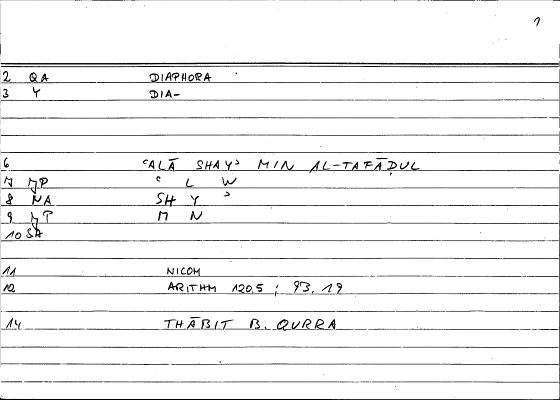 1
2 QA DIAPHORA
3 Y DIA-
6 ʿALĀ SHAYʾ MIN AL-TAFĀḌUL
7 JP ʿ L W
8 NA SH Y ʾ
9 JP M N
10 SA
11 NICOM
12 ARITHM 120.5 ; 93.19
14 THĀBIT B. QURRA